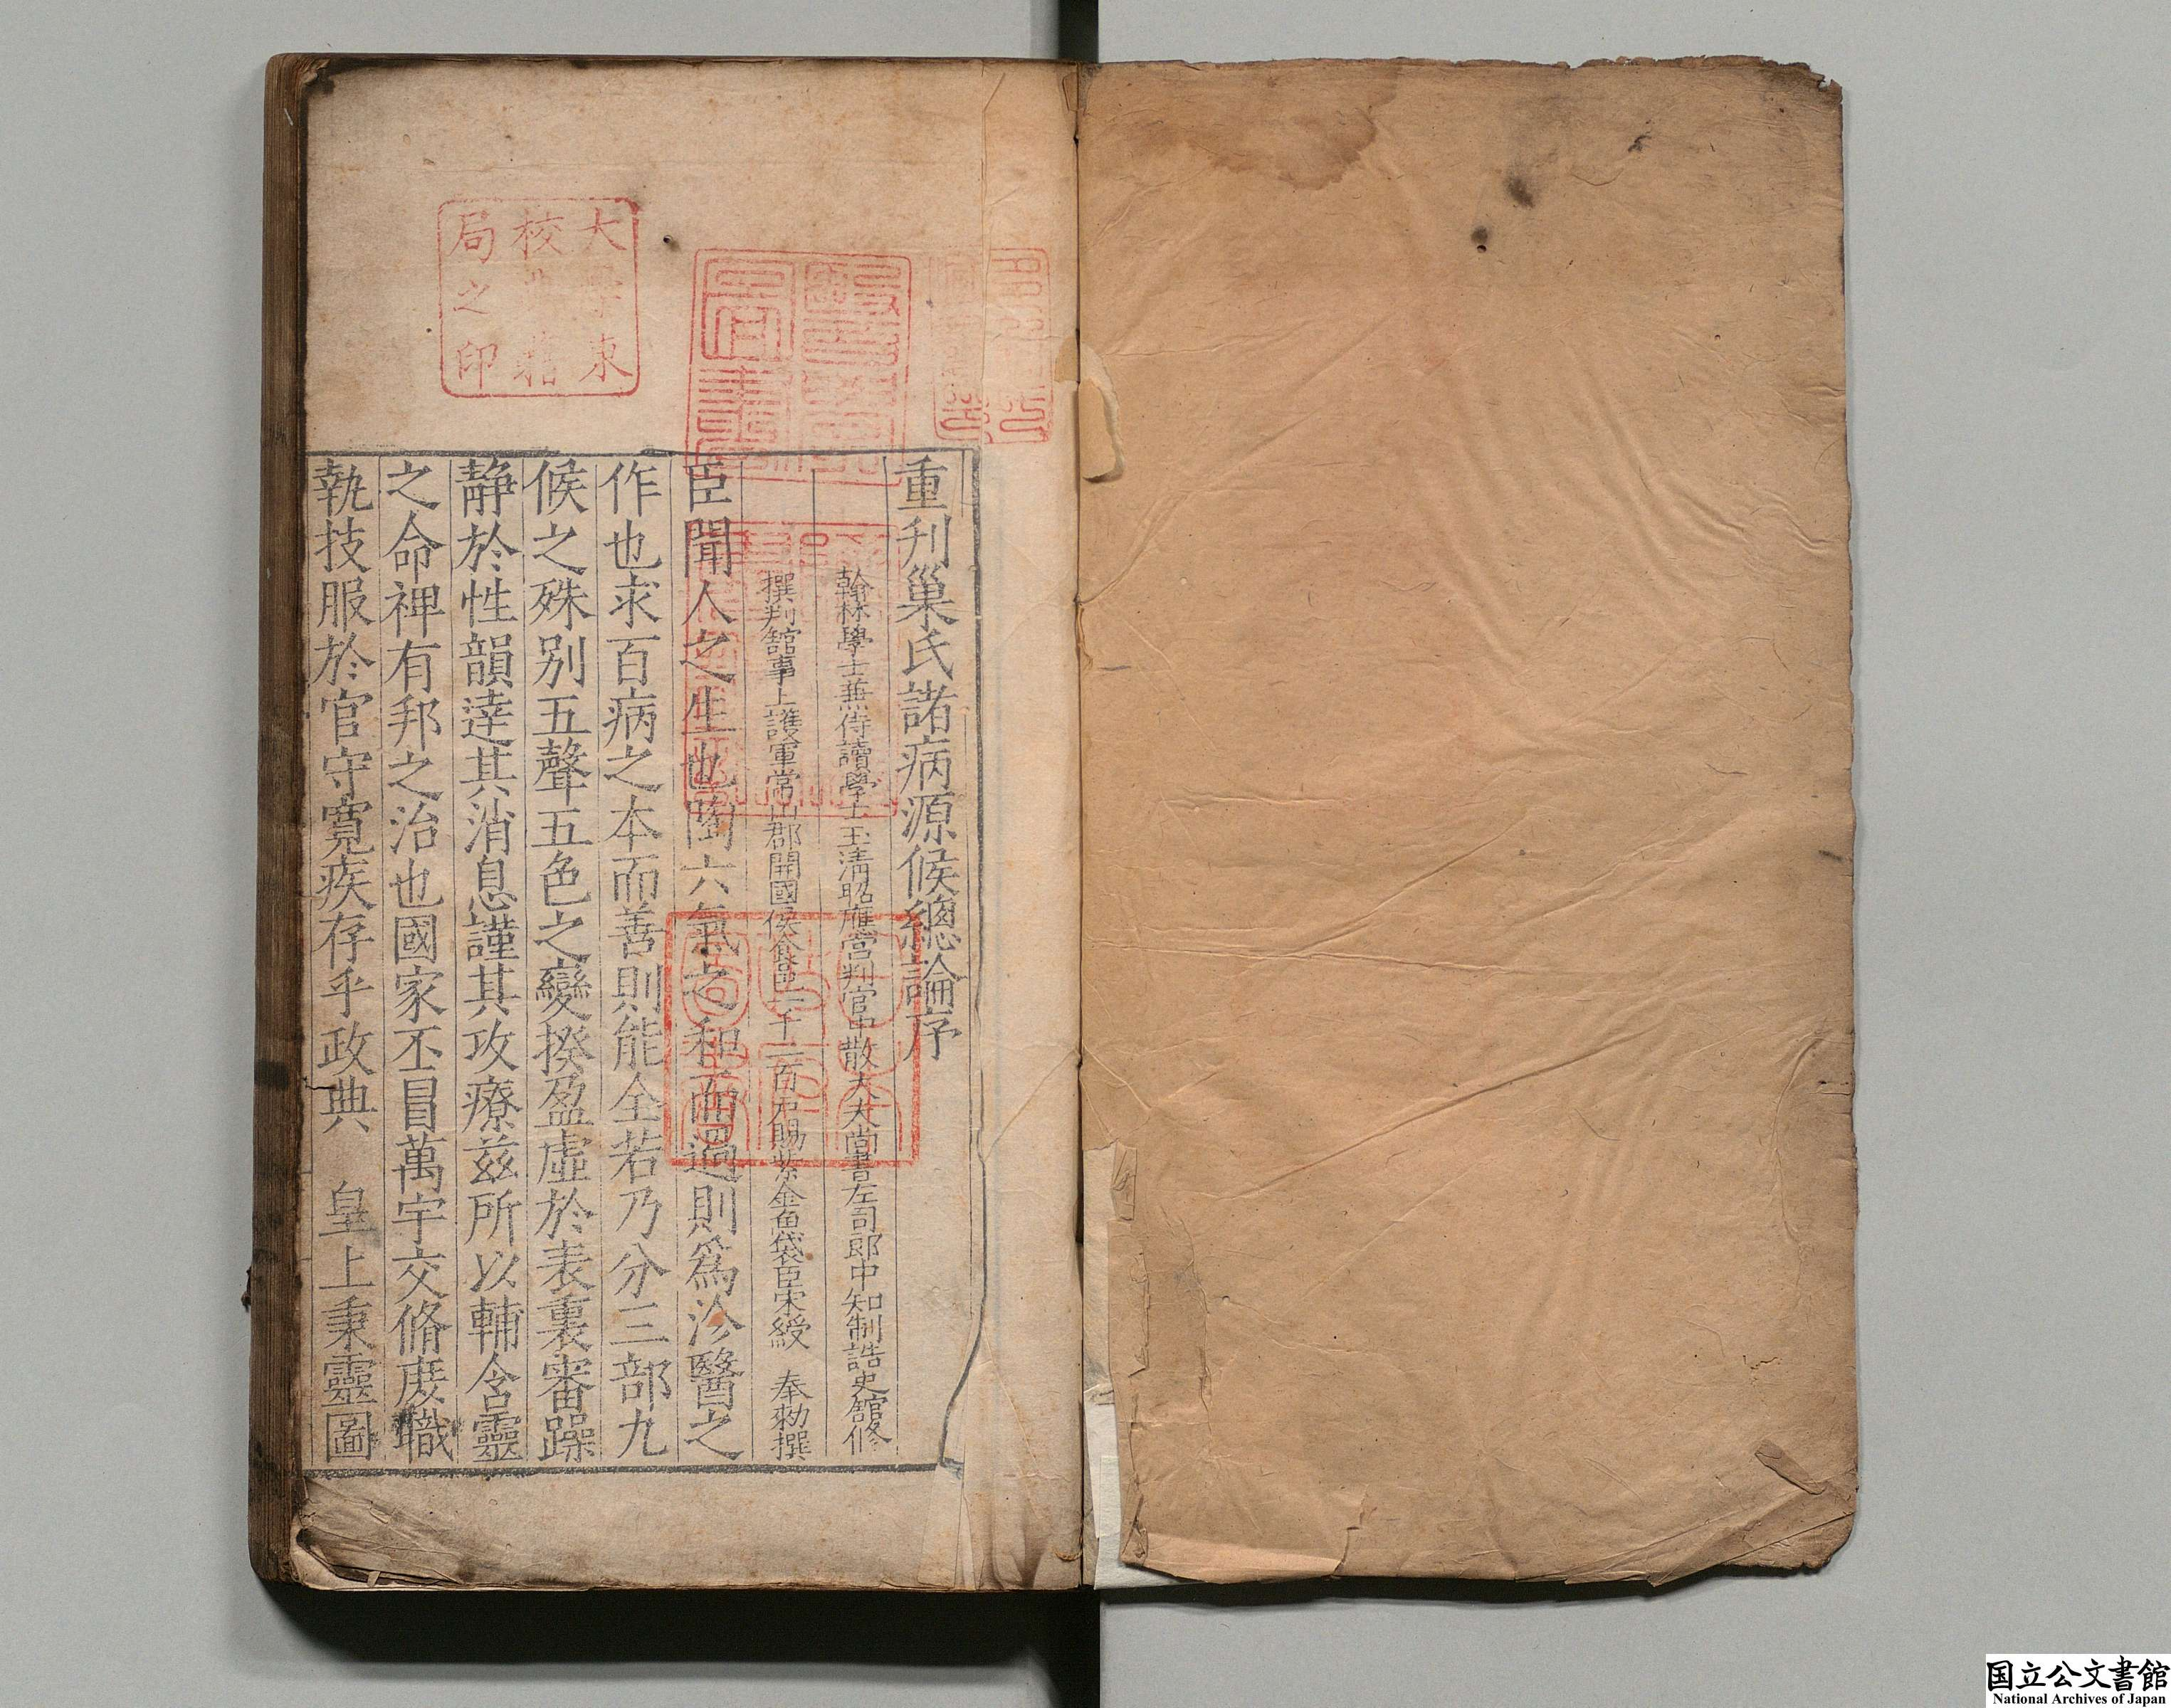 重刋巢氏諸病源候總論序
翰林學士兼侍讀學士玉清昭應宮判官中散大夫尚書左司郎中知制誥史館修
撰判館事上護軍常山郡開國侯食邑一千二百戶賜紫金魚袋臣宋綬 奉勑撰
臣聞人之生也陶六氣之和而過則爲沴醫之
作也求百病之本而善則能全若乃分三部九
候之殊別五聲五色之變揆盈虛於表裏審躁
靜於性韻達其消息謹其攻療兹所以輔含靈
之命裨有邦之治也國家丕冒萬宇交脩庶職
執技服於官守寬疾存乎政典 皇上秉靈圖
大學東
校典藉
局之印
国立公文書館
National Archives of Japan